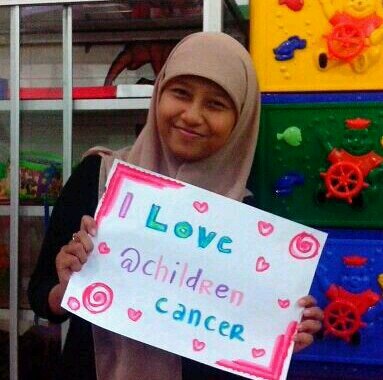 I Love
@children
cancer